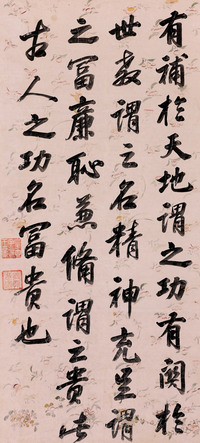 有補於天地謂之功有関於
世教謂之名精神充足謂
之冨廉恥兼俻謂之貴此
古人之功名冨貴也